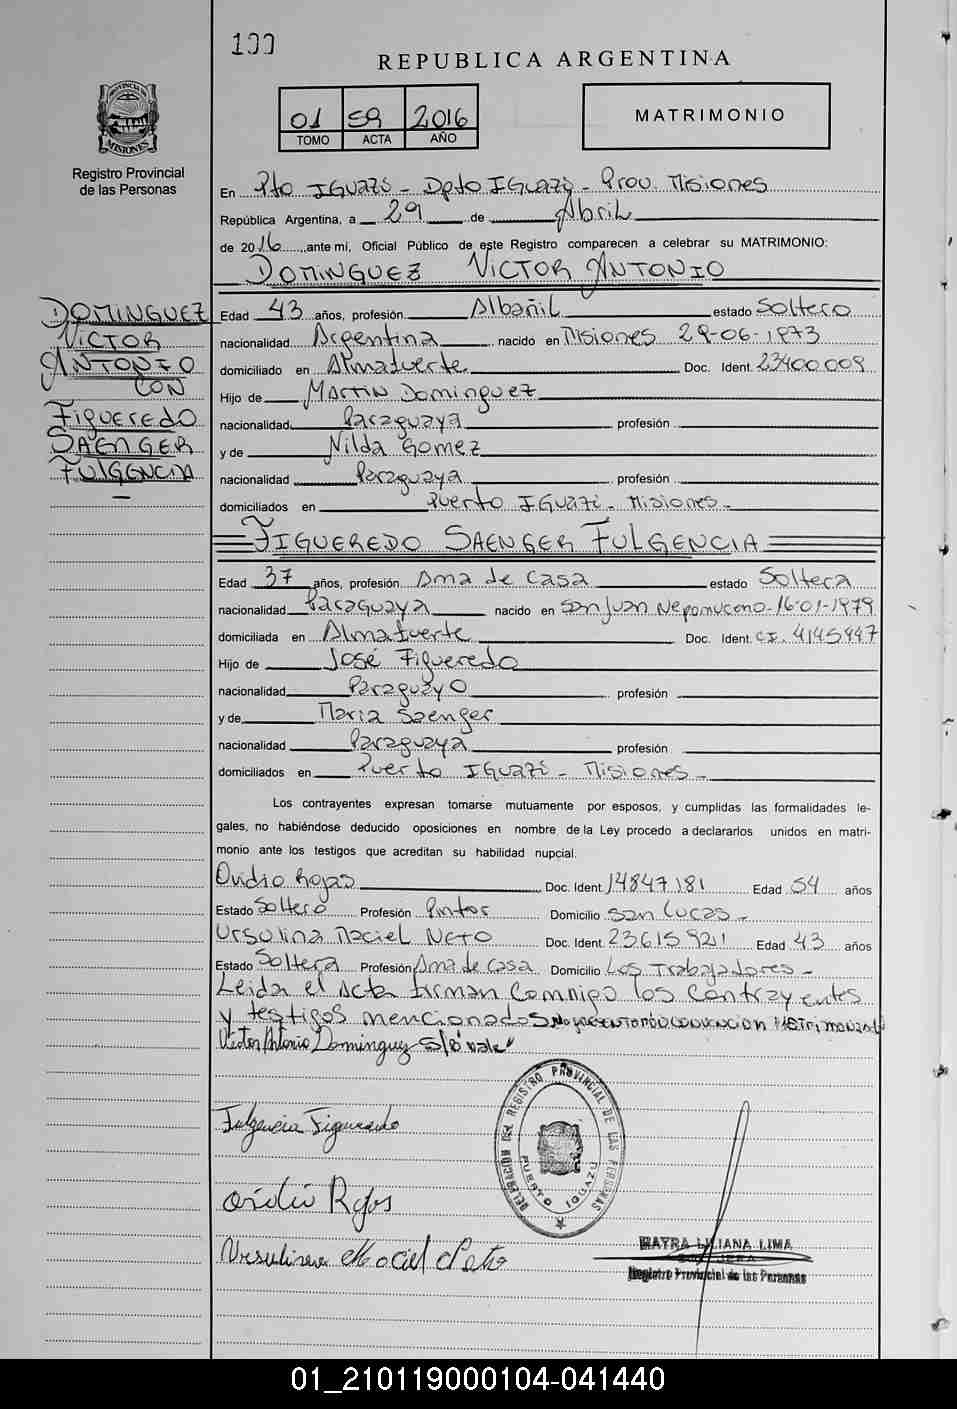 100
REPUBLICA ARGENTINA
PROVINCIA DE MISIONES
Registro Provincial
de las Personas
01 59 2016
TOMO ACTA AÑO
MATRIMONIO
En Pto Iguazú - Dpto Iguazú - Prov. Misiones
República Argentina, a 29 de Abril
de 2016 ante mí, Oficial Público de este Registro comparecen a celebrar su MATRIMONIO:
DOMINGUEZ VICTOR ANTONIO
DOMINGUEZ
VICTOR
ANTONIO
CON
FIGUEREDO
SAENGER
FULGENCIA
Edad 43 años, profesión Albañil estado Soltero
nacionalidad Argentina nacido en Misiones 29-06-1973
domiciliado en Almafuerte Doc. Ident. 23400009
Hijo de Martin Dominguez
nacionalidad Paraguaya profesión
y de Nilda Gomez
nacionalidad Paraguaya profesión
domiciliados en Puerto Iguazú - Misiones -
FIGUEREDO SAENGER FULGENCIA
Edad 37 años, profesión Ama de Casa estado Soltera
nacionalidad Paraguaya nacido en San Juan Nepomuceno-16-01-1979
domiciliada en Almafuerte Doc. Ident. C.I. 4145447
Hijo de José Figueredo
nacionalidad Paraguayo profesión
y de Maria Saenger
nacionalidad Paraguaya profesión
domiciliados en Puerto Iguazú - Misiones -
Los contrayentes expresan tomarse mutuamente por esposos, y cumplidas las formalidades le-
gales, no habiéndose deducido oposiciones en nombre de la Ley procedo a declararlos unidos en matri-
monio ante los testigos que acreditan su habilidad nupcial.
Ovidio Rojas Doc. Ident. 14847181 Edad 54 años
Estado Soltero Profesión Pintor Domicilio San Lucas -
Ursulina Maciel Neto Doc. Ident. 23615921 Edad 43 años
Estado Soltera Profesión Ama de Casa Domicilio Los Trabajadores -
Leida el Acta firman Conmigo los Contrayentes
y testigos mencionados no presentaron convencion Matrimonial
Victor Antonio Dominguez S/B vale"
Fulgencia Figueredo
Ovidio Rojas
Ursulina Maciel Neto
DELEGACIÓN DEL REGISTRO PROVINCIAL DE LAS PERSONAS
PUERTO IGUAZU
MAYRA LILIANA LIMA
Registro Provincial de las Personas
01_210119000104-041440